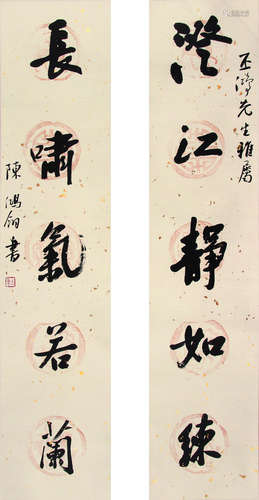 丕濤先生雅屬
澄江靜如練
長嘯氣若蘭
陳鴻翎書